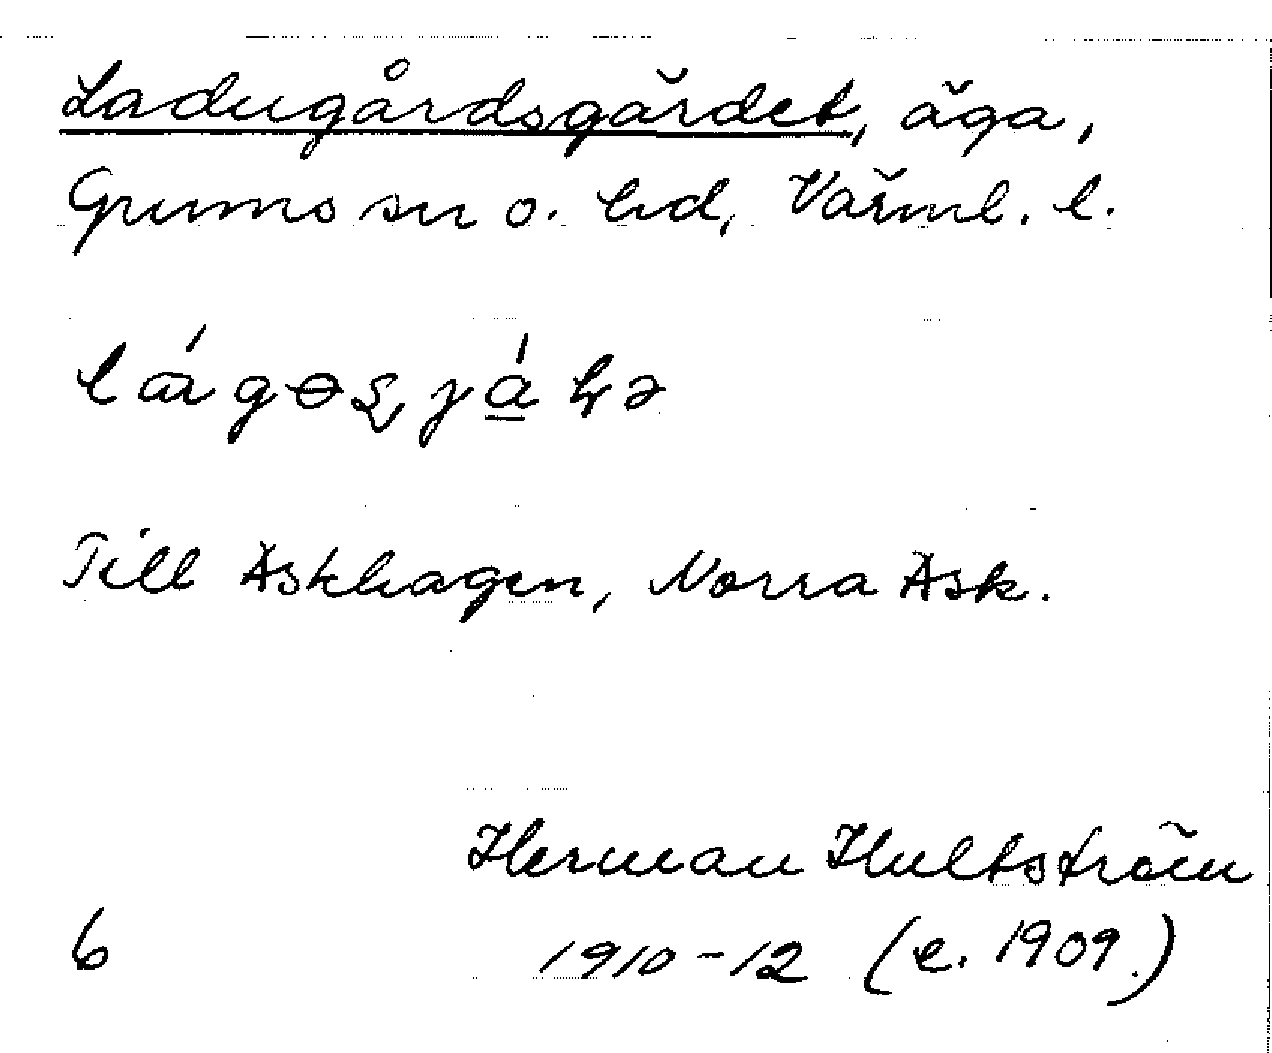 Ladugårdsgärdet, äga,
Grums sn o. hd, Värml. l.
Till Äskhagen, Norra Äsk.
Herman Hultström
6 1910-12 (e. 1909.)